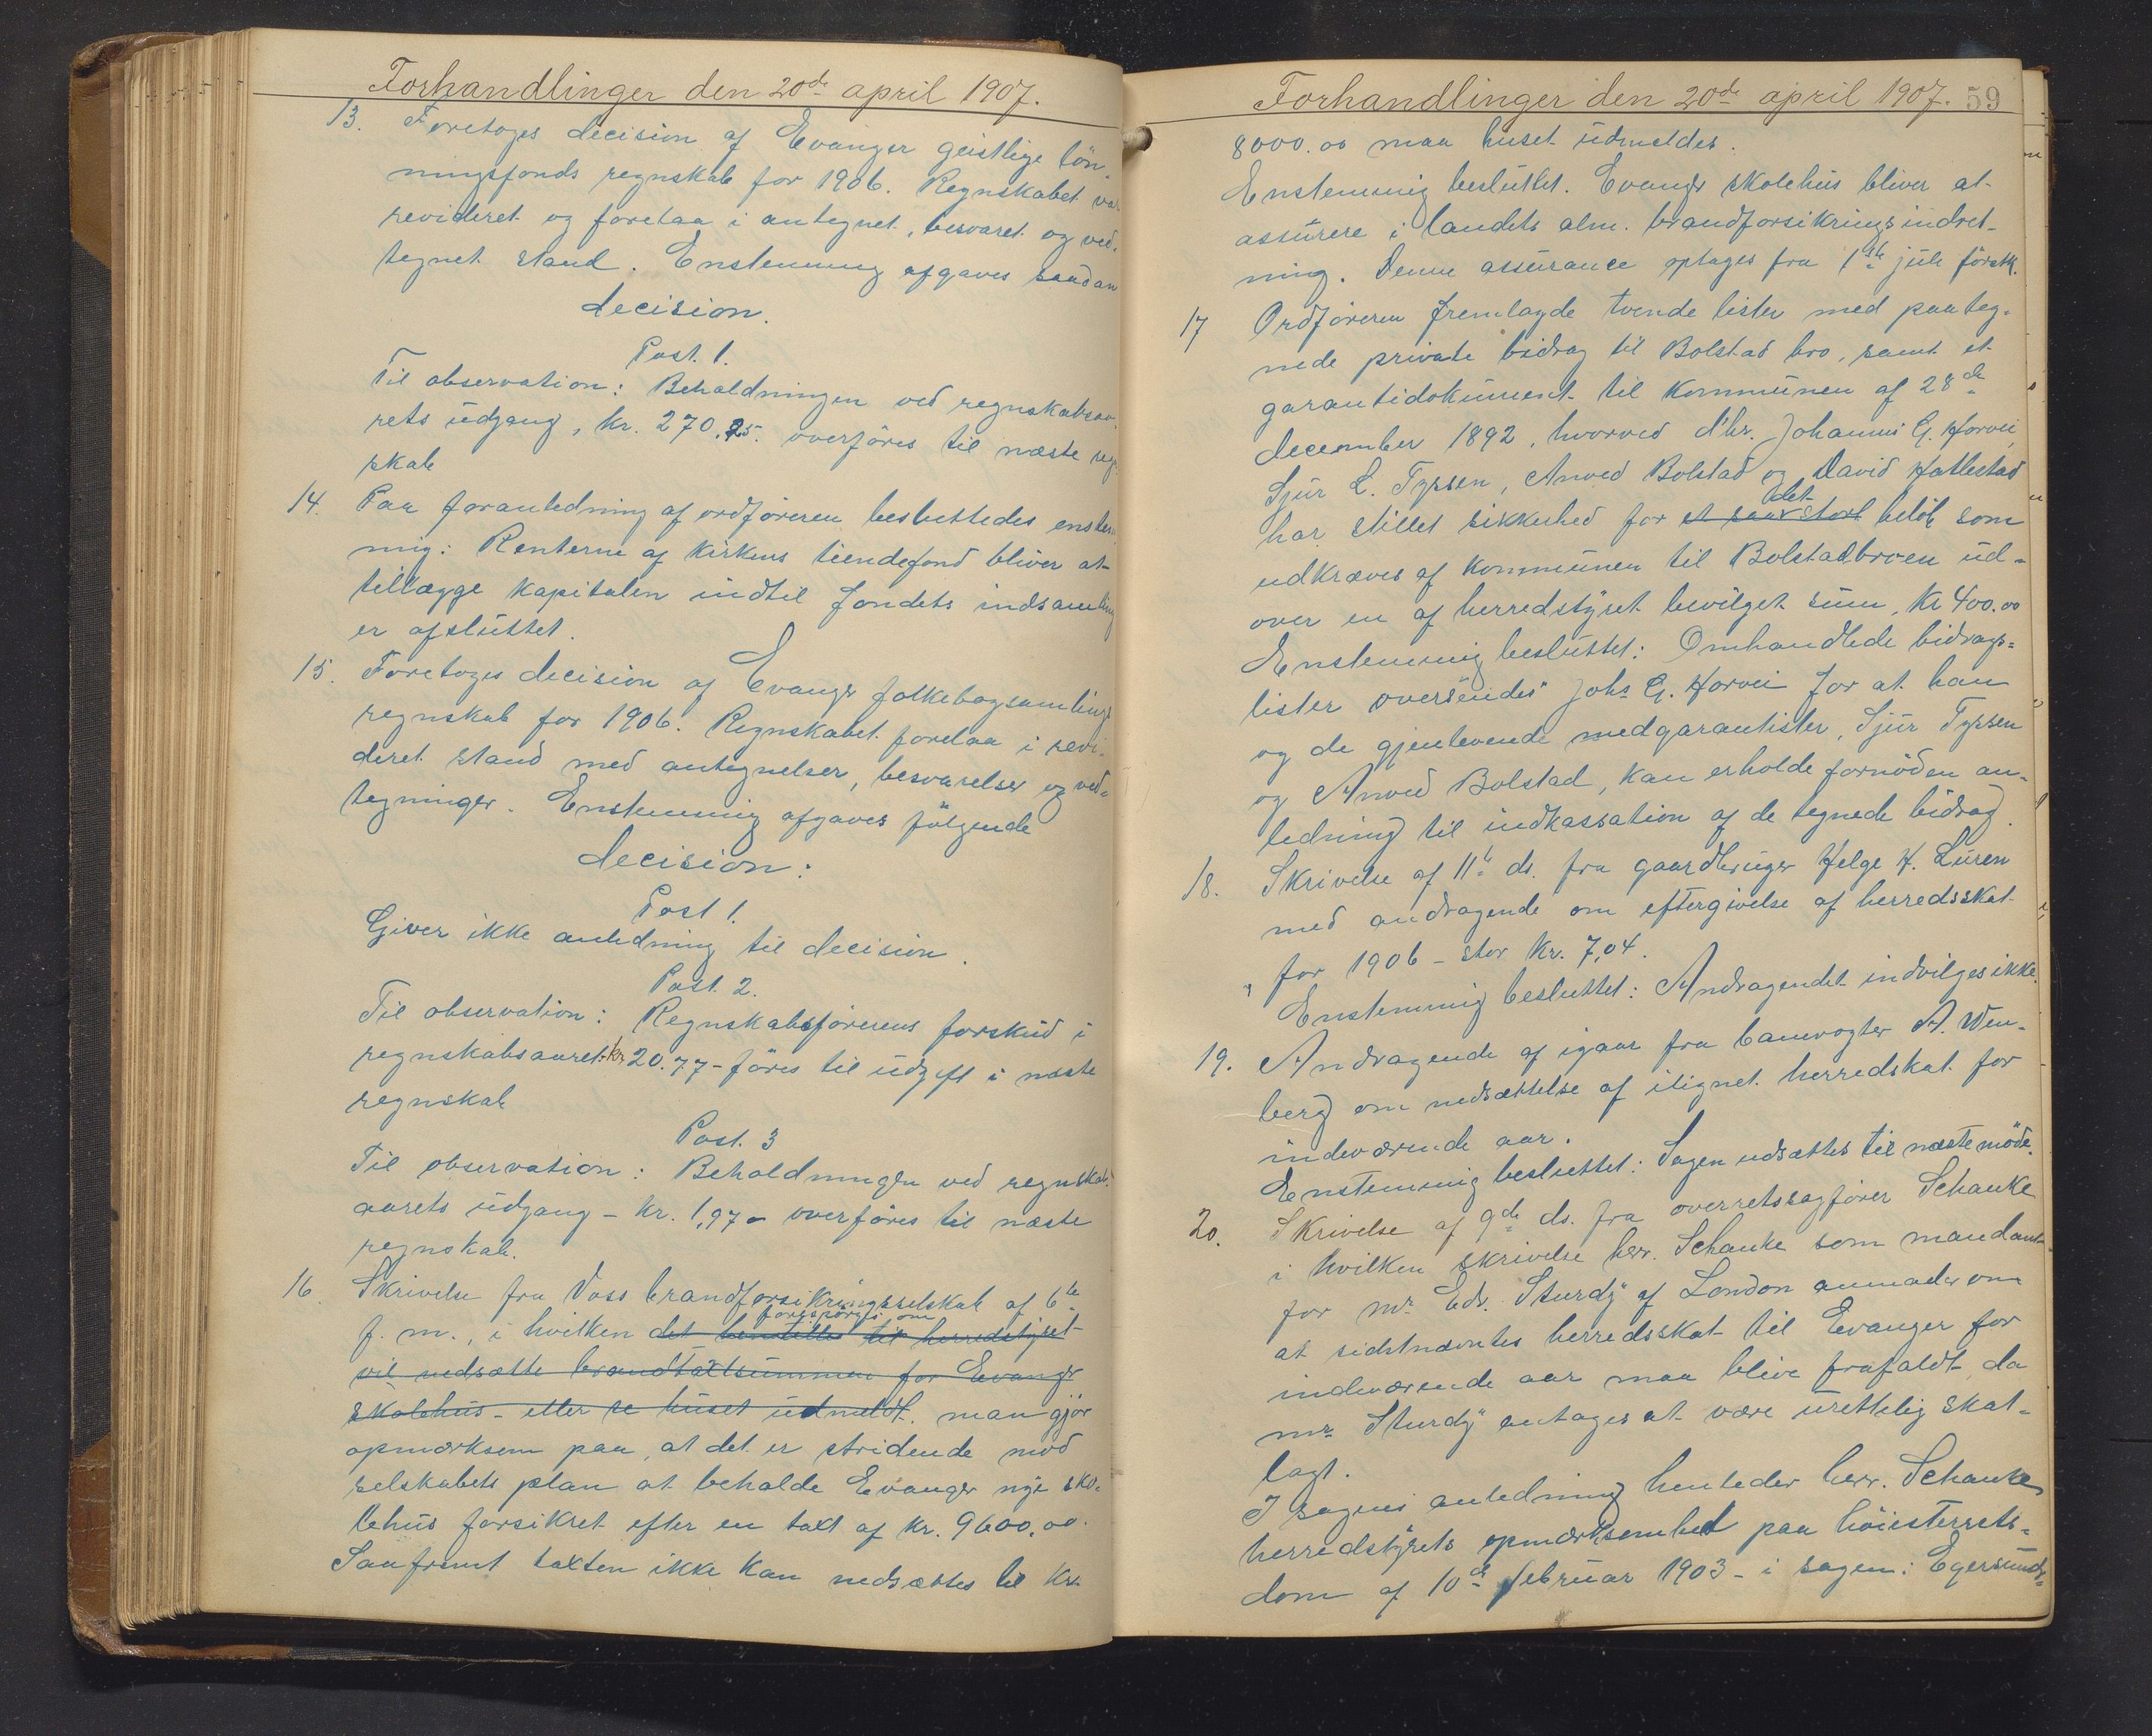 Forhandlinger den 20de april 1907.
13. Foretoges decision af Evanger geistlige løn-
ningsfonds regnskab for 1906. Regnskabet var
revideret og forelaa i antegnet, besvaret og ved-
tegnet stand. Enstemmig afgaves saadan
decision.
Post. 1.
Til observation: Beholdningen ved regnskabsaa-
rets udgang, kr. 270,25. overføres til næste regn-
skab
14. Paa foranledning af ordføreren besluttedes enstem-
mig: Renterne af kirkens tiendefond bliver at
tillægge kapitalen indtil fondets indsamling
er afsluttet.
15. Foretoges decision af Evanger folkebogsamlings
regnskab for 1906. Regnskabet forelaa i revi-
deret stand med antegnelser, besvarelser og ved-
tegninger. Enstemmig afgaves følgende
decision:
Post 1.
Giver ikke anledning til decision.
Post. 2.
Til observation: Regnskabsførerens forskud i
regnskabsaaret kr 20.77 - føres til udgift i næste
regnskab
Post. 3
Til observation: Beholdningen ved regnskabs-
aarets udgang - kr. 1,97 - overføres til næste
regnskab.
16. Skrivelse fra Voss brandforsikringsselskab af 6te
forespørges om
f. m., i hvilken det henstilles til herredstyret
vil nedsætte brandtaxtsummen for Evanger
skolehus - eller se huset udmeldt. man gjør
opmærksom paa, at det er stridende mod
selskabets plan at beholde Evanger nye sko-
lehus forsikret efter en taxt af kr. 9600,00.
Saafremt taxten ikke kan nedsættes til kr.
Forhandlinger den 20de april 1907. 59
8000.00 maa huset udmeldes.
Enstemmig besluttet. Evanger skolehus bliver at
assurere i landets alm. brandforsikringsindret-
ning. Denne assurance optages fra 1ste juli førstk.
17 Ordføreren fremlagde tvende lister med paateg-
nede private bidrag til Bolstad bro, samt et
garantidokument til kommunen af 28de
december 1892, hvorved d'hr. Johannes G. Horvei,
Sjur L. Tyssen, Anved Bolstad og David Hatlestad
det
har stillet sikkerhed for et saa stort beløb som
udkræves af kommunen til Bolstadbroen ud-
over en af herredstyret bevilget sum, kr 400.00
Enstemmig besluttet: Omhandlede bidrags-
lister oversendes Johs G. Horvei for at han
og de gjenlevende medgarantister, Sjur Tyssen
og Anved Bolstad, kan erholde fornøden an-
ledning til indkassation af de tegnede bidrag.
18. Skrivelse af 11te ds. fra gaardbruger Helge H. Luren
med andragende om eftergivelse af herredsskat
for 1906 - stor kr. 7,04.
Enstemmig besluttet: Andragendet indvilges ikke.
19. Andragende af igaar fra banevogter A. Wen-
berg om nedsættelse af ilignet herredskat for
indeværende aar.
Enstemmig besluttet: Sagen udsættes til næste møde.
20. Skrivelse af 9de ds. fra overretssagfører Schanke
i hvilken skrivelse herr. Schanke som mandant
for mr Edv. Sturdy af London anmoder om
at sidstnævntes herredsskat til Evanger for
indeværende aar maa blive frafaldt, da
mr Sturdy antages at være urettelig skat-
lagt.
I sagens anledning henleder herr. Schanke
herredstyrets opmærksomhed paa høiesterrets-
dom af 10de februar 1903 - i sagen: Egersunds-